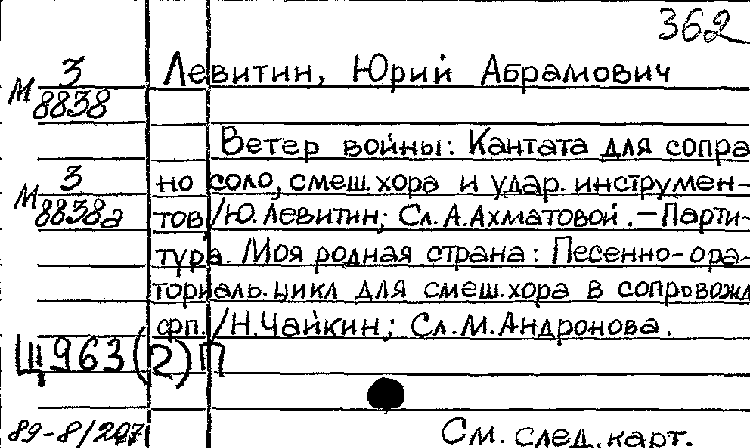 362
М 3/8838
Левитин, Юрий Абрамович
Ветер войны: Кантата для сопра
М 3/8838а
но соло, смеш. хора и удар. инструмен-
тов /Ю. Левитин; Сл. А. Ахматовой. – Парти-
тура. Моя родная страна: Песенно-ора-
ториаль. цикл для смеш. хора в сопровожд
фп. /Н. Чайкин; Сл. М. Андронова.
Щ963(2)П
89-8/207
См. след. карт.